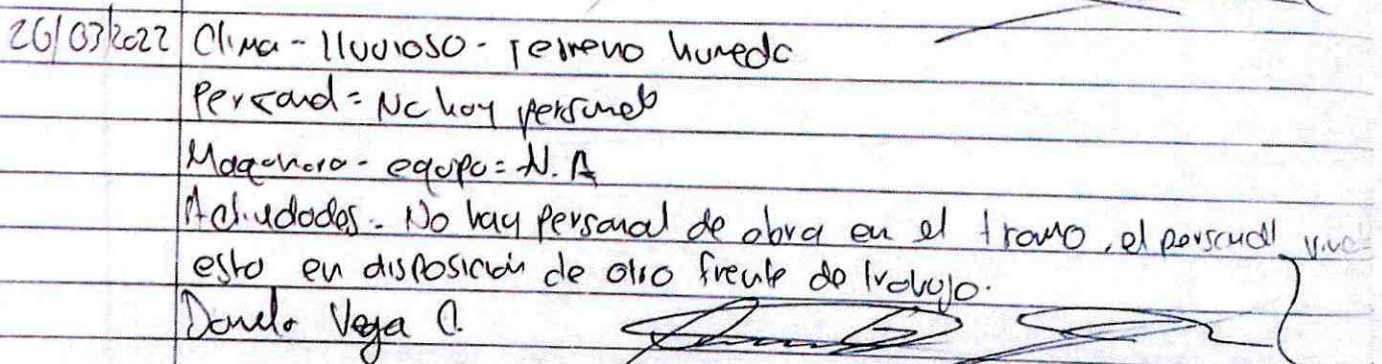 26/03/2022 Clima - lluvioso - terreno humedo
Personal = No hay personal
Maquinaria - equipo = N.A
Actividades - No hay personal de obra en el tramo, el personal
esta en disposición de otro frente de trabajo.
Danilo Vega C.